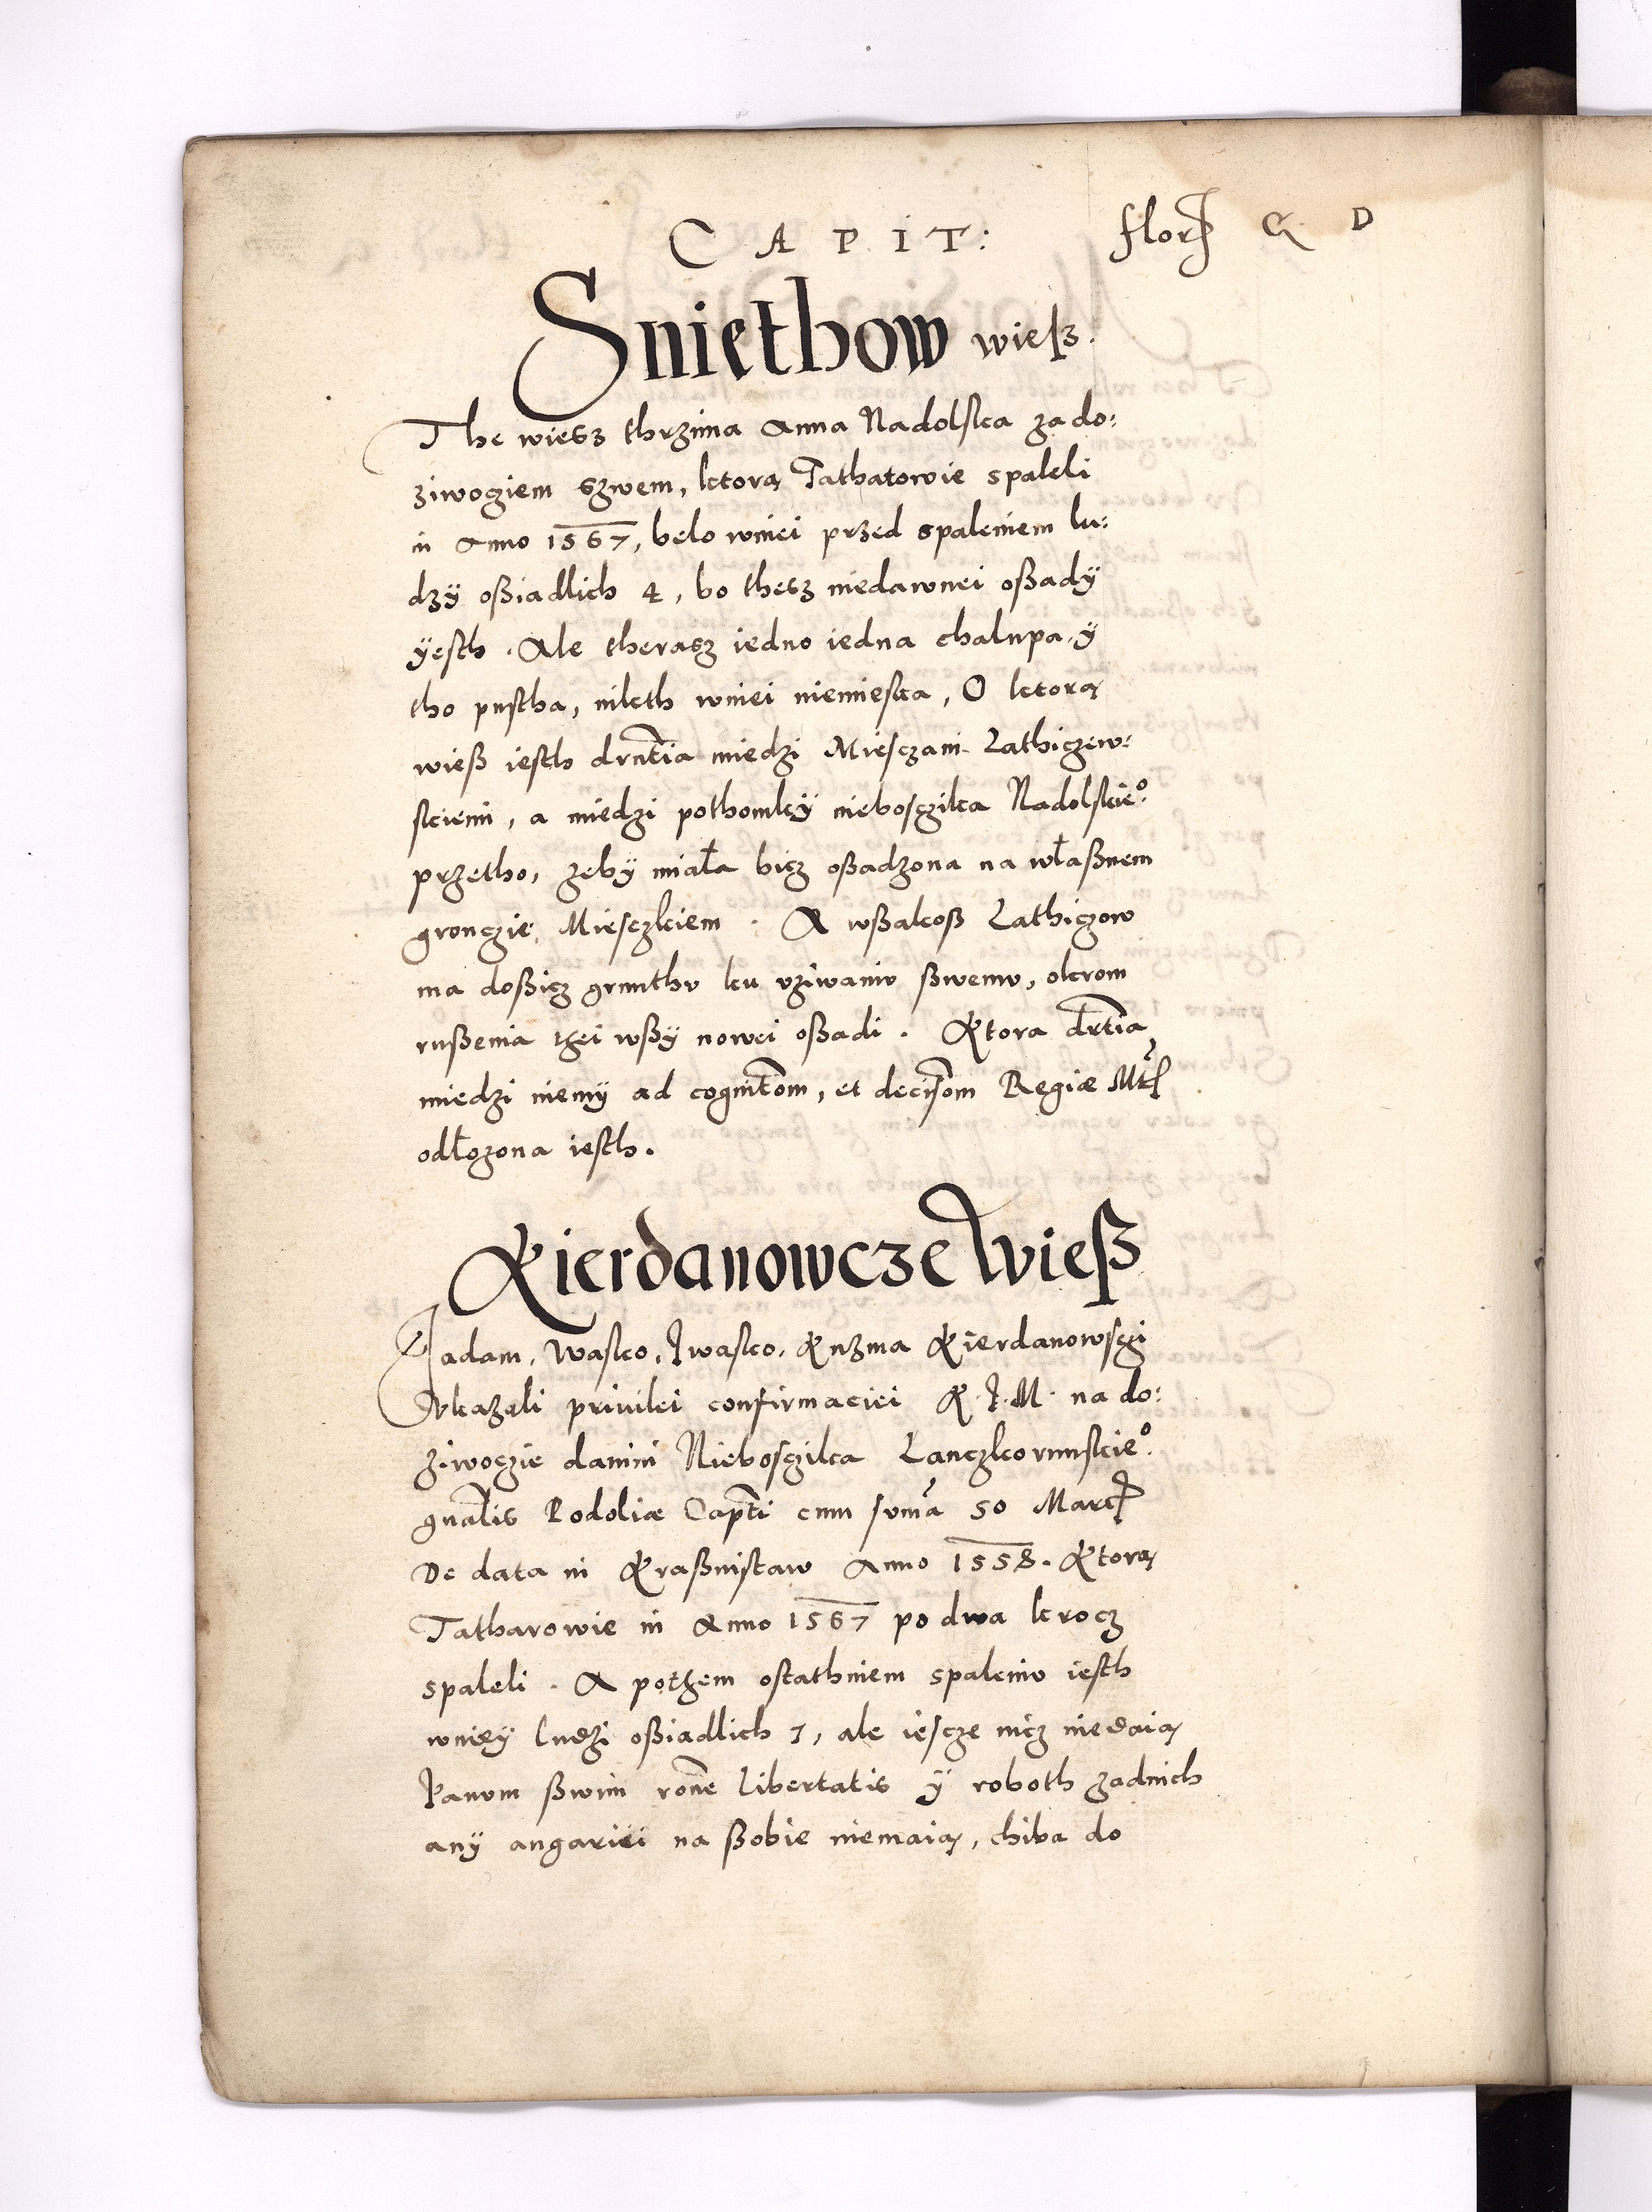 CAPIT: flor G D
Sniethow wieß.
The wiesz thrzima Anna Nadolska za do:
ziwoziem szwem, ktorą Tatharowie spaleli
in Anno 1567, belo wniei przed spaleniem lu:
dzÿ oßiadlich 4, bo thesz niedawnei oßadÿ
ÿesth. Ale therasz iedno iedna chalupa, ÿ
tho pustha, nikth wniei niemieska, O ktorą
wieß iesth drntia miedzi Miesczani Lathiczew:
skiemi, a miedzi pothomkÿ nieboszika Nadolskieº.
przetho, zebÿ miała bicz oßadzona na właßnem
gronczie Miesczkiem. A wßakoß Lathiczow
ma doßicz grunthv ku vziwaniv ßwemv, okrom
rußenia thei wßÿ nowei oßadi. Ktora drtia
miedzi niemÿ ad cognitom, et decisom Regiæ Mtis
odłozona iesth.
Kierdanowcze Wieß
Jadam, Wasko, Iwasko, Kuzma Kierdanowsczi
Vkazali priuilei confirmaciei K. I. M. na do:
ziwoczie danini Niebosczika Lanczkorunskieº.
gnalis Podoliæ Capti cum suma 50 Marc
De data in Kraßnistaw Anno 1558. Ktorą
Tatharowie in Anno 1567 po dwa krocz
spaleli. A pothem ostathniem spaleniv iesth
wniey ludzi oßiadlich 7, ale iescze nicz niedaią
Panom ßwim rone libertatis ÿ roboth zadnich
anÿ angariei na ßobie niemaią, chiba do